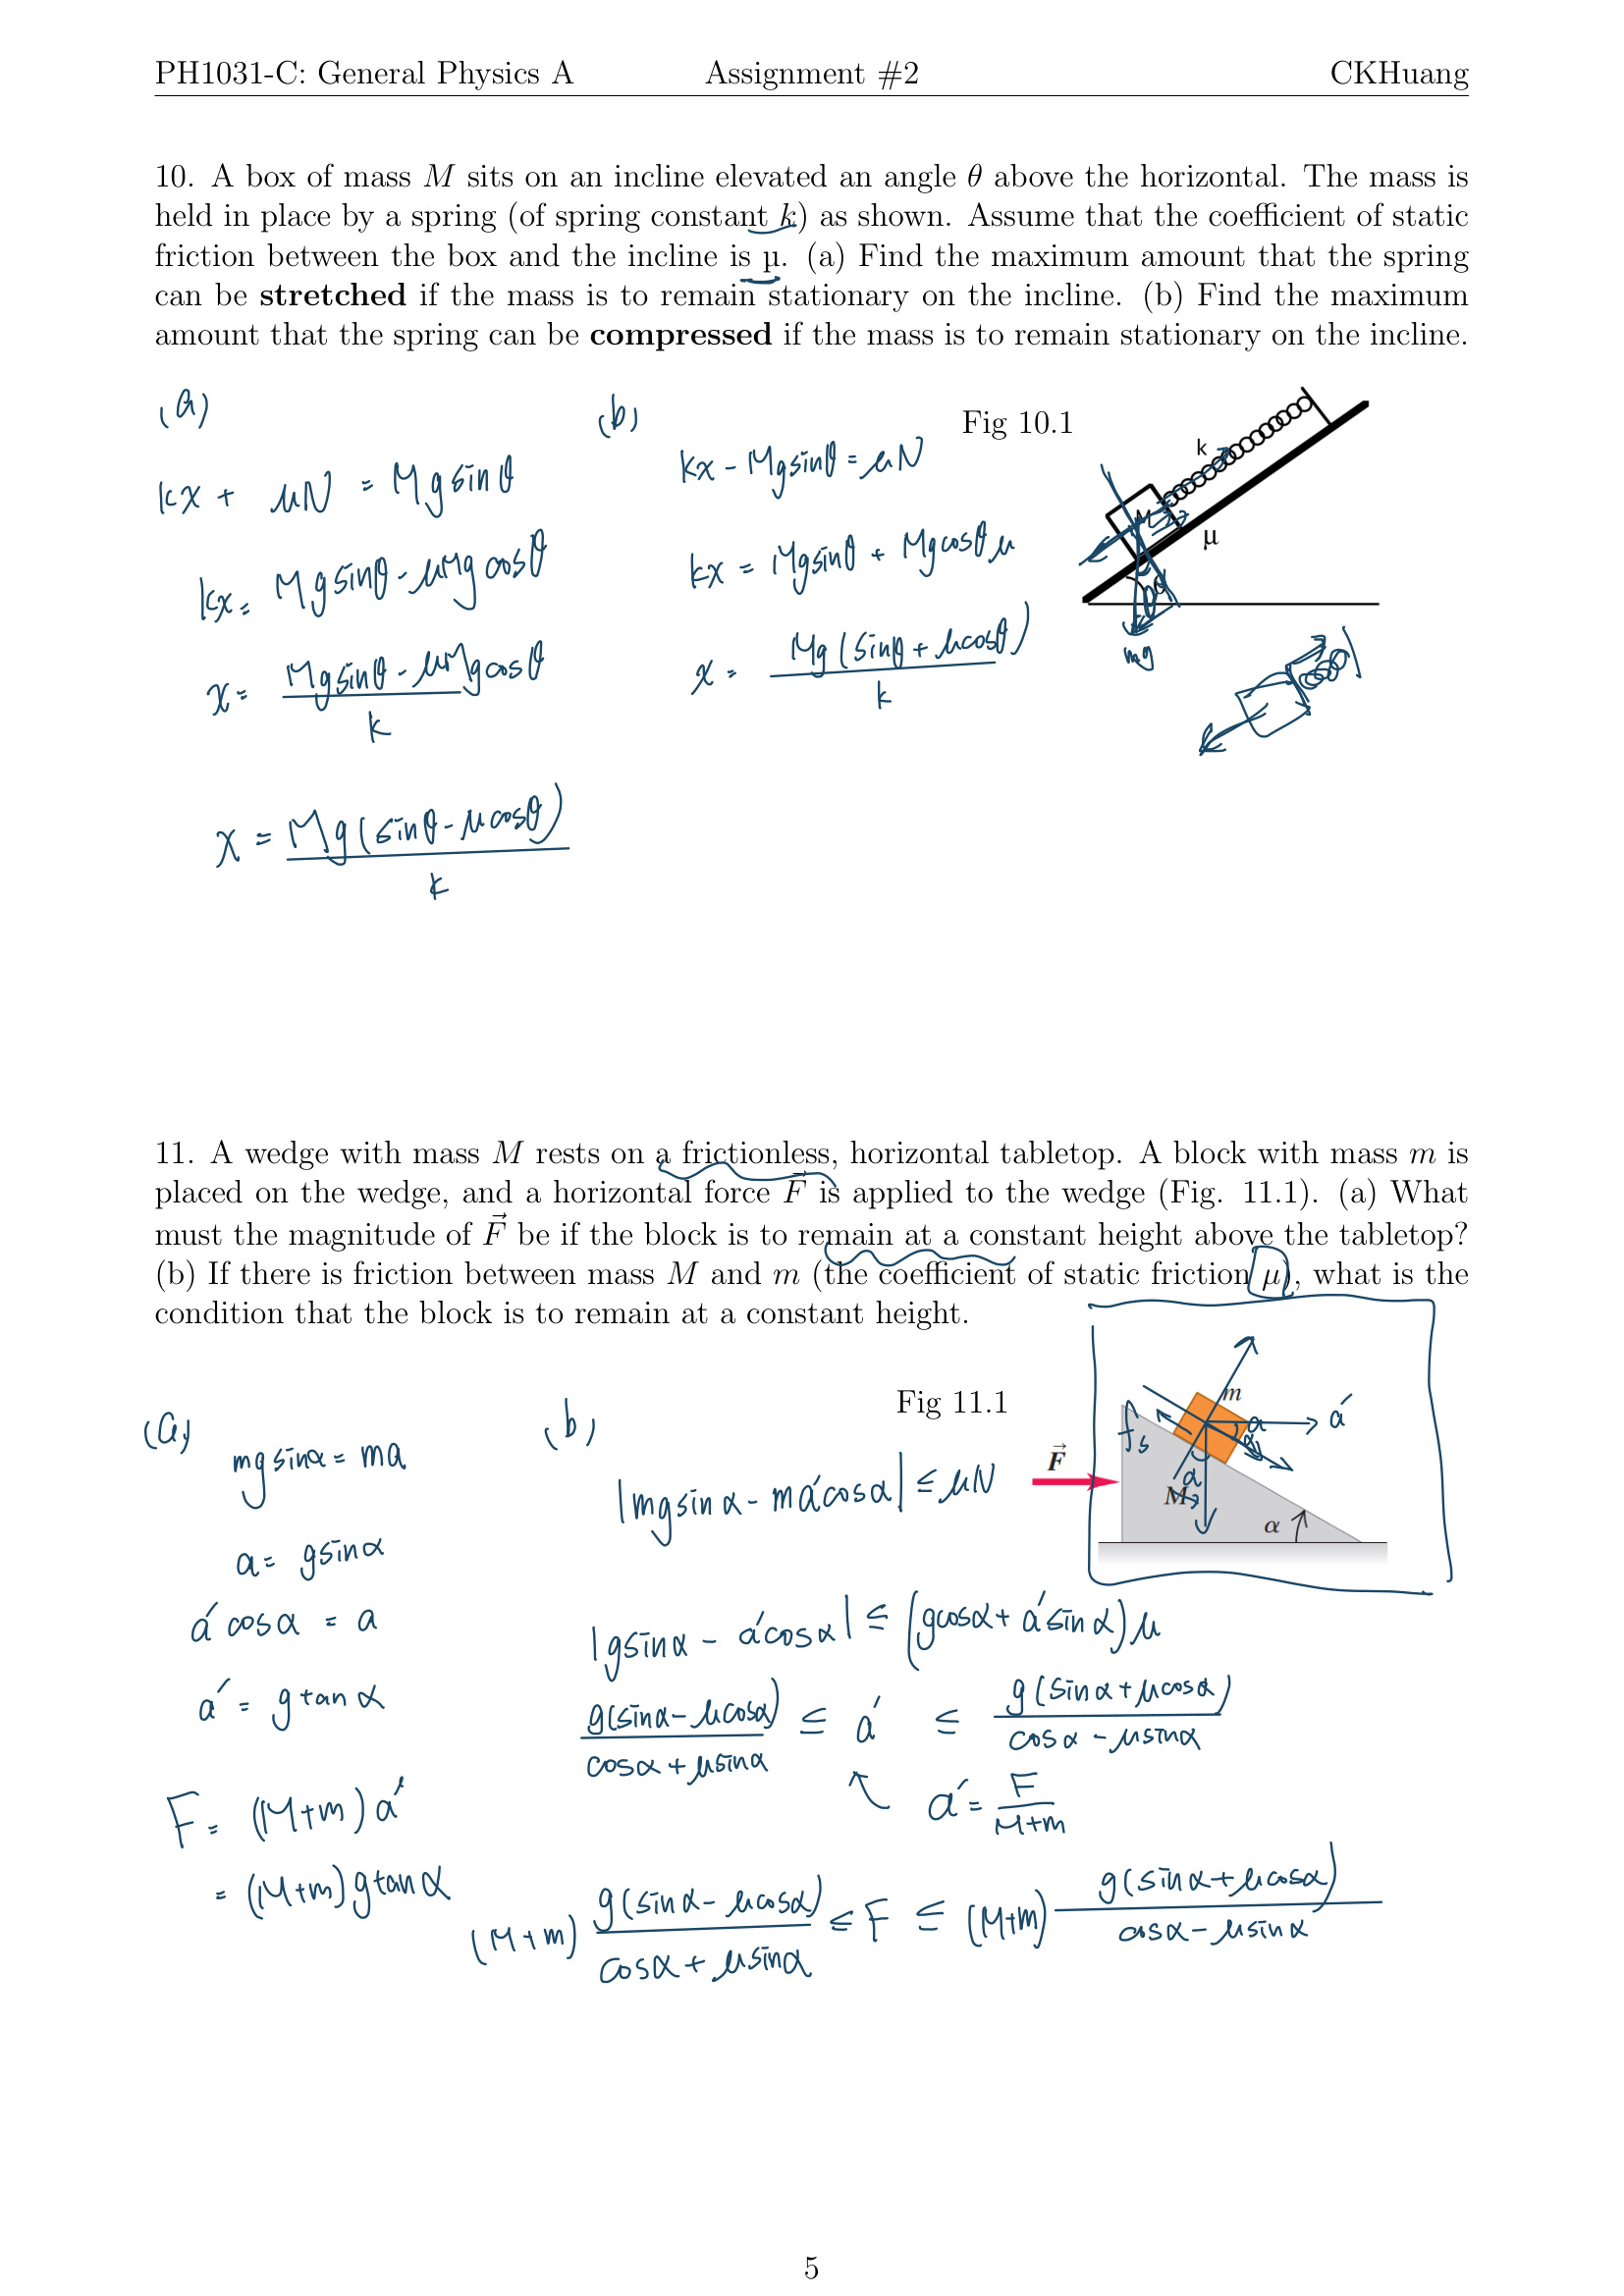 PH1031-C: General Physics A Assignment #2 CKHuang
10. A box of mass M sits on an incline elevated an angle θ above the horizontal. The mass is
held in place by a spring (of spring constant k) as shown. Assume that the coefficient of static
friction between the box and the incline is μ. (a) Find the maximum amount that the spring
can be stretched if the mass is to remain stationary on the incline. (b) Find the maximum
amount that the spring can be compressed if the mass is to remain stationary on the incline.
(a)
kx + μN = Mg sinθ
kx = Mg sinθ - μMg cosθ
x = (Mg sinθ - μMg cosθ) / k
x = Mg(sinθ - μcosθ) / k
(b)
kx - Mg sinθ = μN
kx = Mg sinθ + Mg cosθ μ
x = Mg(sinθ + μcosθ) / k
Fig 10.1
k
M
μ
θ
mg
11. A wedge with mass M rests on a frictionless, horizontal tabletop. A block with mass m is
placed on the wedge, and a horizontal force F⃗ is applied to the wedge (Fig. 11.1). (a) What
must the magnitude of F⃗ be if the block is to remain at a constant height above the tabletop?
(b) If there is friction between mass M and m (the coefficient of static friction μ), what is the
condition that the block is to remain at a constant height.
(a)
mg sinα = ma
a = g sinα
a' cosα = a
a' = g tanα
F = (M+m) a'
= (M+m) g tanα
(b)
|mg sinα - ma' cosα| ≤ μN
|g sinα - a' cosα| ≤ (g cosα + a' sinα) μ
g(sinα - μcosα) / (cosα + μsinα) ≤ a' ≤ g(sinα + μcosα) / (cosα - μsinα)
a' = F / (M+m)
(M+m) g(sinα - μcosα) / (cosα + μsinα) ≤ F ≤ (M+m) g(sinα + μcosα) / (cosα - μsinα)
Fig 11.1
m
a'
fs
a
α
F⃗
α
M
α
5